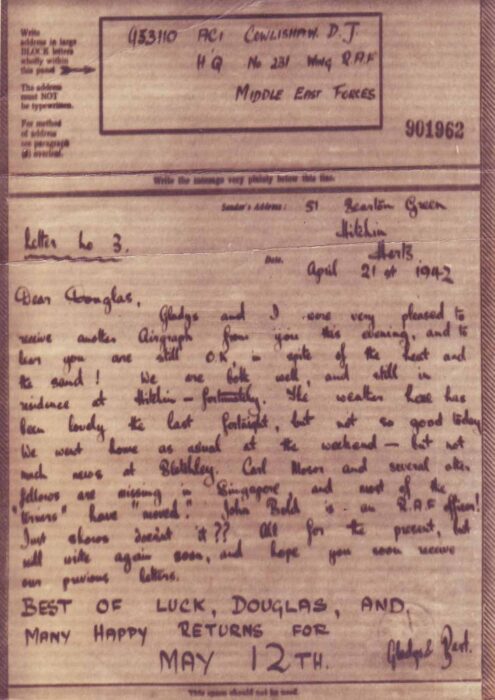 Write
address in large
BLOCK letters
wholly within
this panel
The address
must NOT
be typewritten.
For method
of address
see paragraph
overleaf.
953110 AC1 COWLISHAW. D. J
H Q No 231 WING R.A.F
MIDDLE EAST FORCES
901962
Write the message very plainly below this line.
Sender's Address: 51 Green
Hitchin
Herts
Letter No 3.
Date. April 21st 1942
Dear Douglas,
Gladys and I were very pleased to
receive another Airgraph from you this evening, and to
hear you are still O.K, in spite of the heat and
the sand! We are both well, and still in
residence at Hitchin – fortunately. The weather here has
been lovely the last fortnight, but not so good today.
We went home as usual at the weekend – but not
much news at Bletchley. Carl and several other
fellows are missing in Singapore and most of the
have "moved". John Bold is an R.A.F officer!
Just shows doesn't it?? All for the present, but
will write again soon, and hope you soon receive
our previous letters.
BEST OF LUCK, DOUGLAS, AND,
MANY HAPPY RETURNS FOR
MAY 12TH.
Gladys &
This space should not be used.